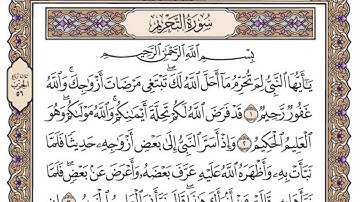 سُورَةُ التَّحْرِيمِ
بِسْمِ اللَّهِ الرَّحْمَٰنِ الرَّحِيمِ
يَا أَيُّهَا النَّبِيُّ لِمَ تُحَرِّمُ مَا أَحَلَّ اللَّهُ لَكَ تَبْتَغِي مَرْضَاتَ أَزْوَاجِكَ وَاللَّهُ
غَفُورٌ رَّحِيمٌ ١ قَدْ فَرَضَ اللَّهُ لَكُمْ تَحِلَّةَ أَيْمَانِكُمْ وَاللَّهُ مَوْلَاكُمْ وَهُوَ
الْعَلِيمُ الْحَكِيمُ ٢ وَإِذْ أَسَرَّ النَّبِيُّ إِلَىٰ بَعْضِ أَزْوَاجِهِ حَدِيثًا فَلَمَّا
نَبَّأَتْ بِهِ وَأَظْهَرَهُ اللَّهُ عَلَيْهِ عَرَّفَ بَعْضَهُ وَأَعْرَضَ عَن بَعْضٍ فَلَمَّا
الحزب
٥٦